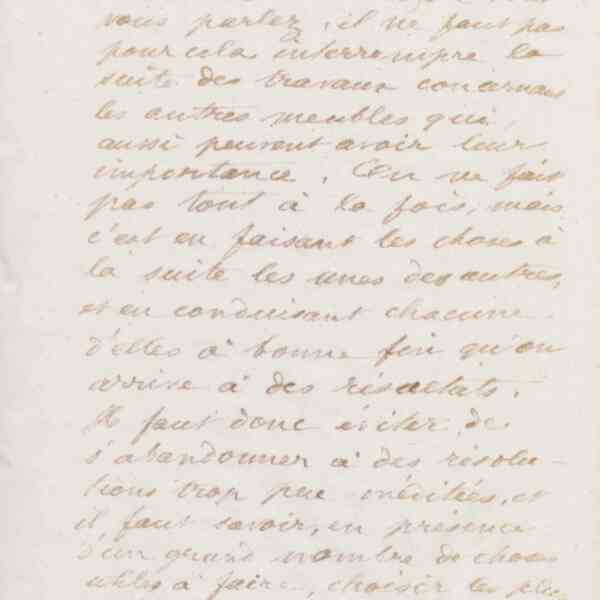 vous parlez, il ne faut pas
pour cela interrompre la
suite des travaux concernant
les autres meubles qui,
aussi peuvent avoir leur
importance. On ne fait
pas tout à la fois, mais
c'est en faisant les choses à
la suite les unes des autres,
et en conduisant chacune
d'elles à bonne fin qu'on
arrive à des résultats.
Il faut donc éviter de
s'abandonner à des résolu-
tions trop peu méditées, et
il faut savoir, en présence
d'un grand nombre de choses
utiles à faire, choisir les plus